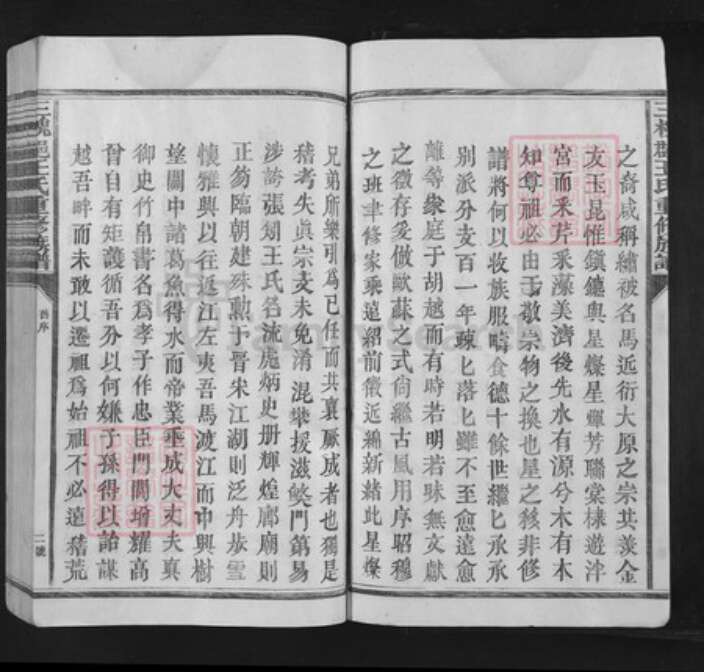 之裔咸稱繡被名馬近衍大原之宗共羨金
友玉昆惟鎭鏸與星燦星輝芳聯棠棣遊泮
宮而釆芹釆藻美濟後先水有源兮木有木
知尊祖必由于敬宗物之換也星之移非修
譜將何以收族服疇食德十餘世繼匕承承
別派分支百一年疎匕落匕雖不至愈遠愈
離等家庭于胡越而有時若明若昧無文獻
之徵存爰倣歐蘇之式尙繼古風用序昭穆
之班聿修家乘遠紹前徽近編新緒此星燦
兄弟所樂引爲已任而共襄厥成者也獨是
稽考失眞宗支未免淆混攀援滋獘門第易
涉誇張勿王氏名流彪炳史册輝煌廊廟則
正笏臨朝建殊勲于晋宋江湖則泛舟歩雪
懷雅興以往返江左夾吾馬渡江而中興樹
望關中諸葛魚得水而帝業垂成大丈夫眞
御史竹帛書名爲孝子作忠臣門閭增耀高
曾自有矩護循吾分以何嫌子孫得以詒謀
越吾畔而未敢以遷祖爲始祖不必遠稽荒
三槐郡王氏重修族譜
舊序
二號